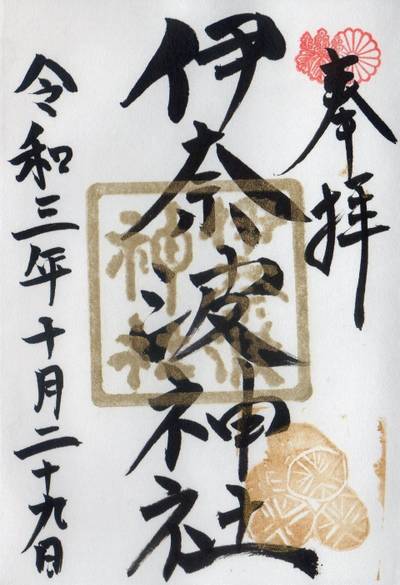 奉拝
伊奈波神社
令和三年十月二十九日
伊奈波
神社